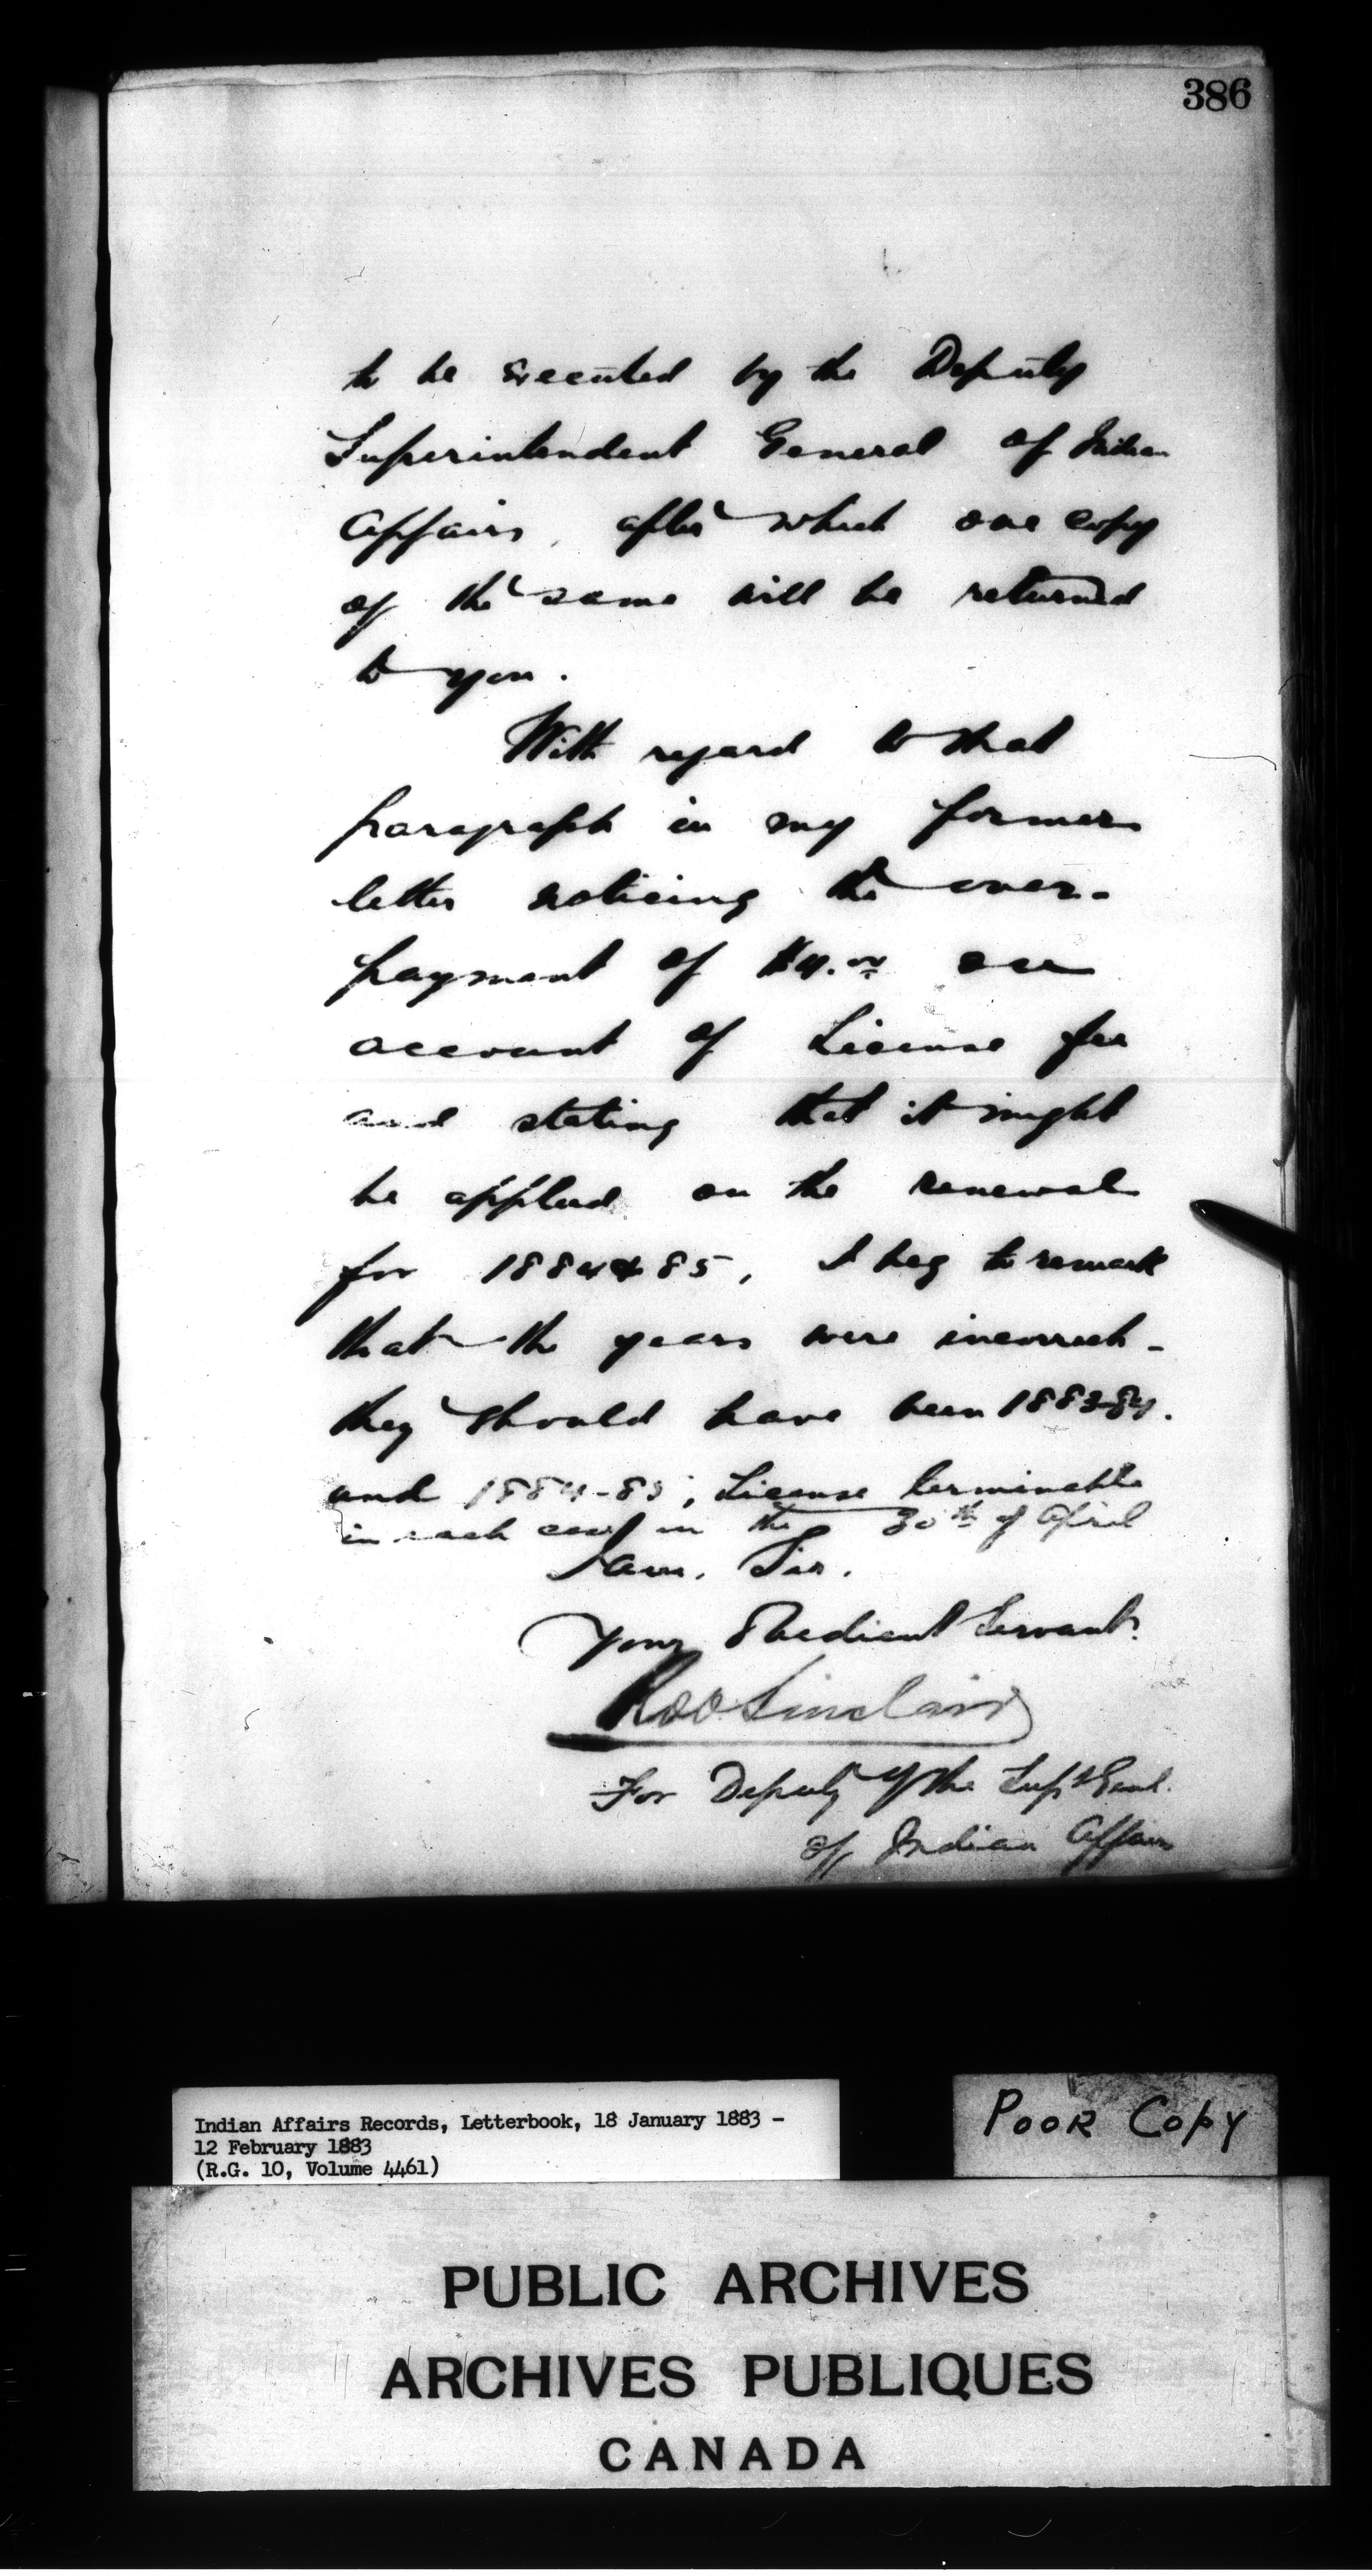 386
to be executed by the Deputy
Superintendent General of Indian
Affairs, after which one copy
of the same will be returned
to you.
With regard to that
paragraph in my former
letter noticing the over-
payment of $4.00 on
account of License fee
and stating that it might
be applied on the renewal
for 1884 & 85, I beg to remark
that the years were incorrect -
they should have been 1883-84.
and 1884-85; License terminable
in each case on the 30th of April
I am, Sir.
Your Obedient Servant.
Rob Sinclair
For Deputy of the Supt Genl.
of Indian Affairs
Indian Affairs Records, Letterbook, 18 January 1883 -
12 February 1883
(R.G. 10, Volume 4461)
POOR COPY
PUBLIC ARCHIVES
ARCHIVES PUBLIQUES
CANADA